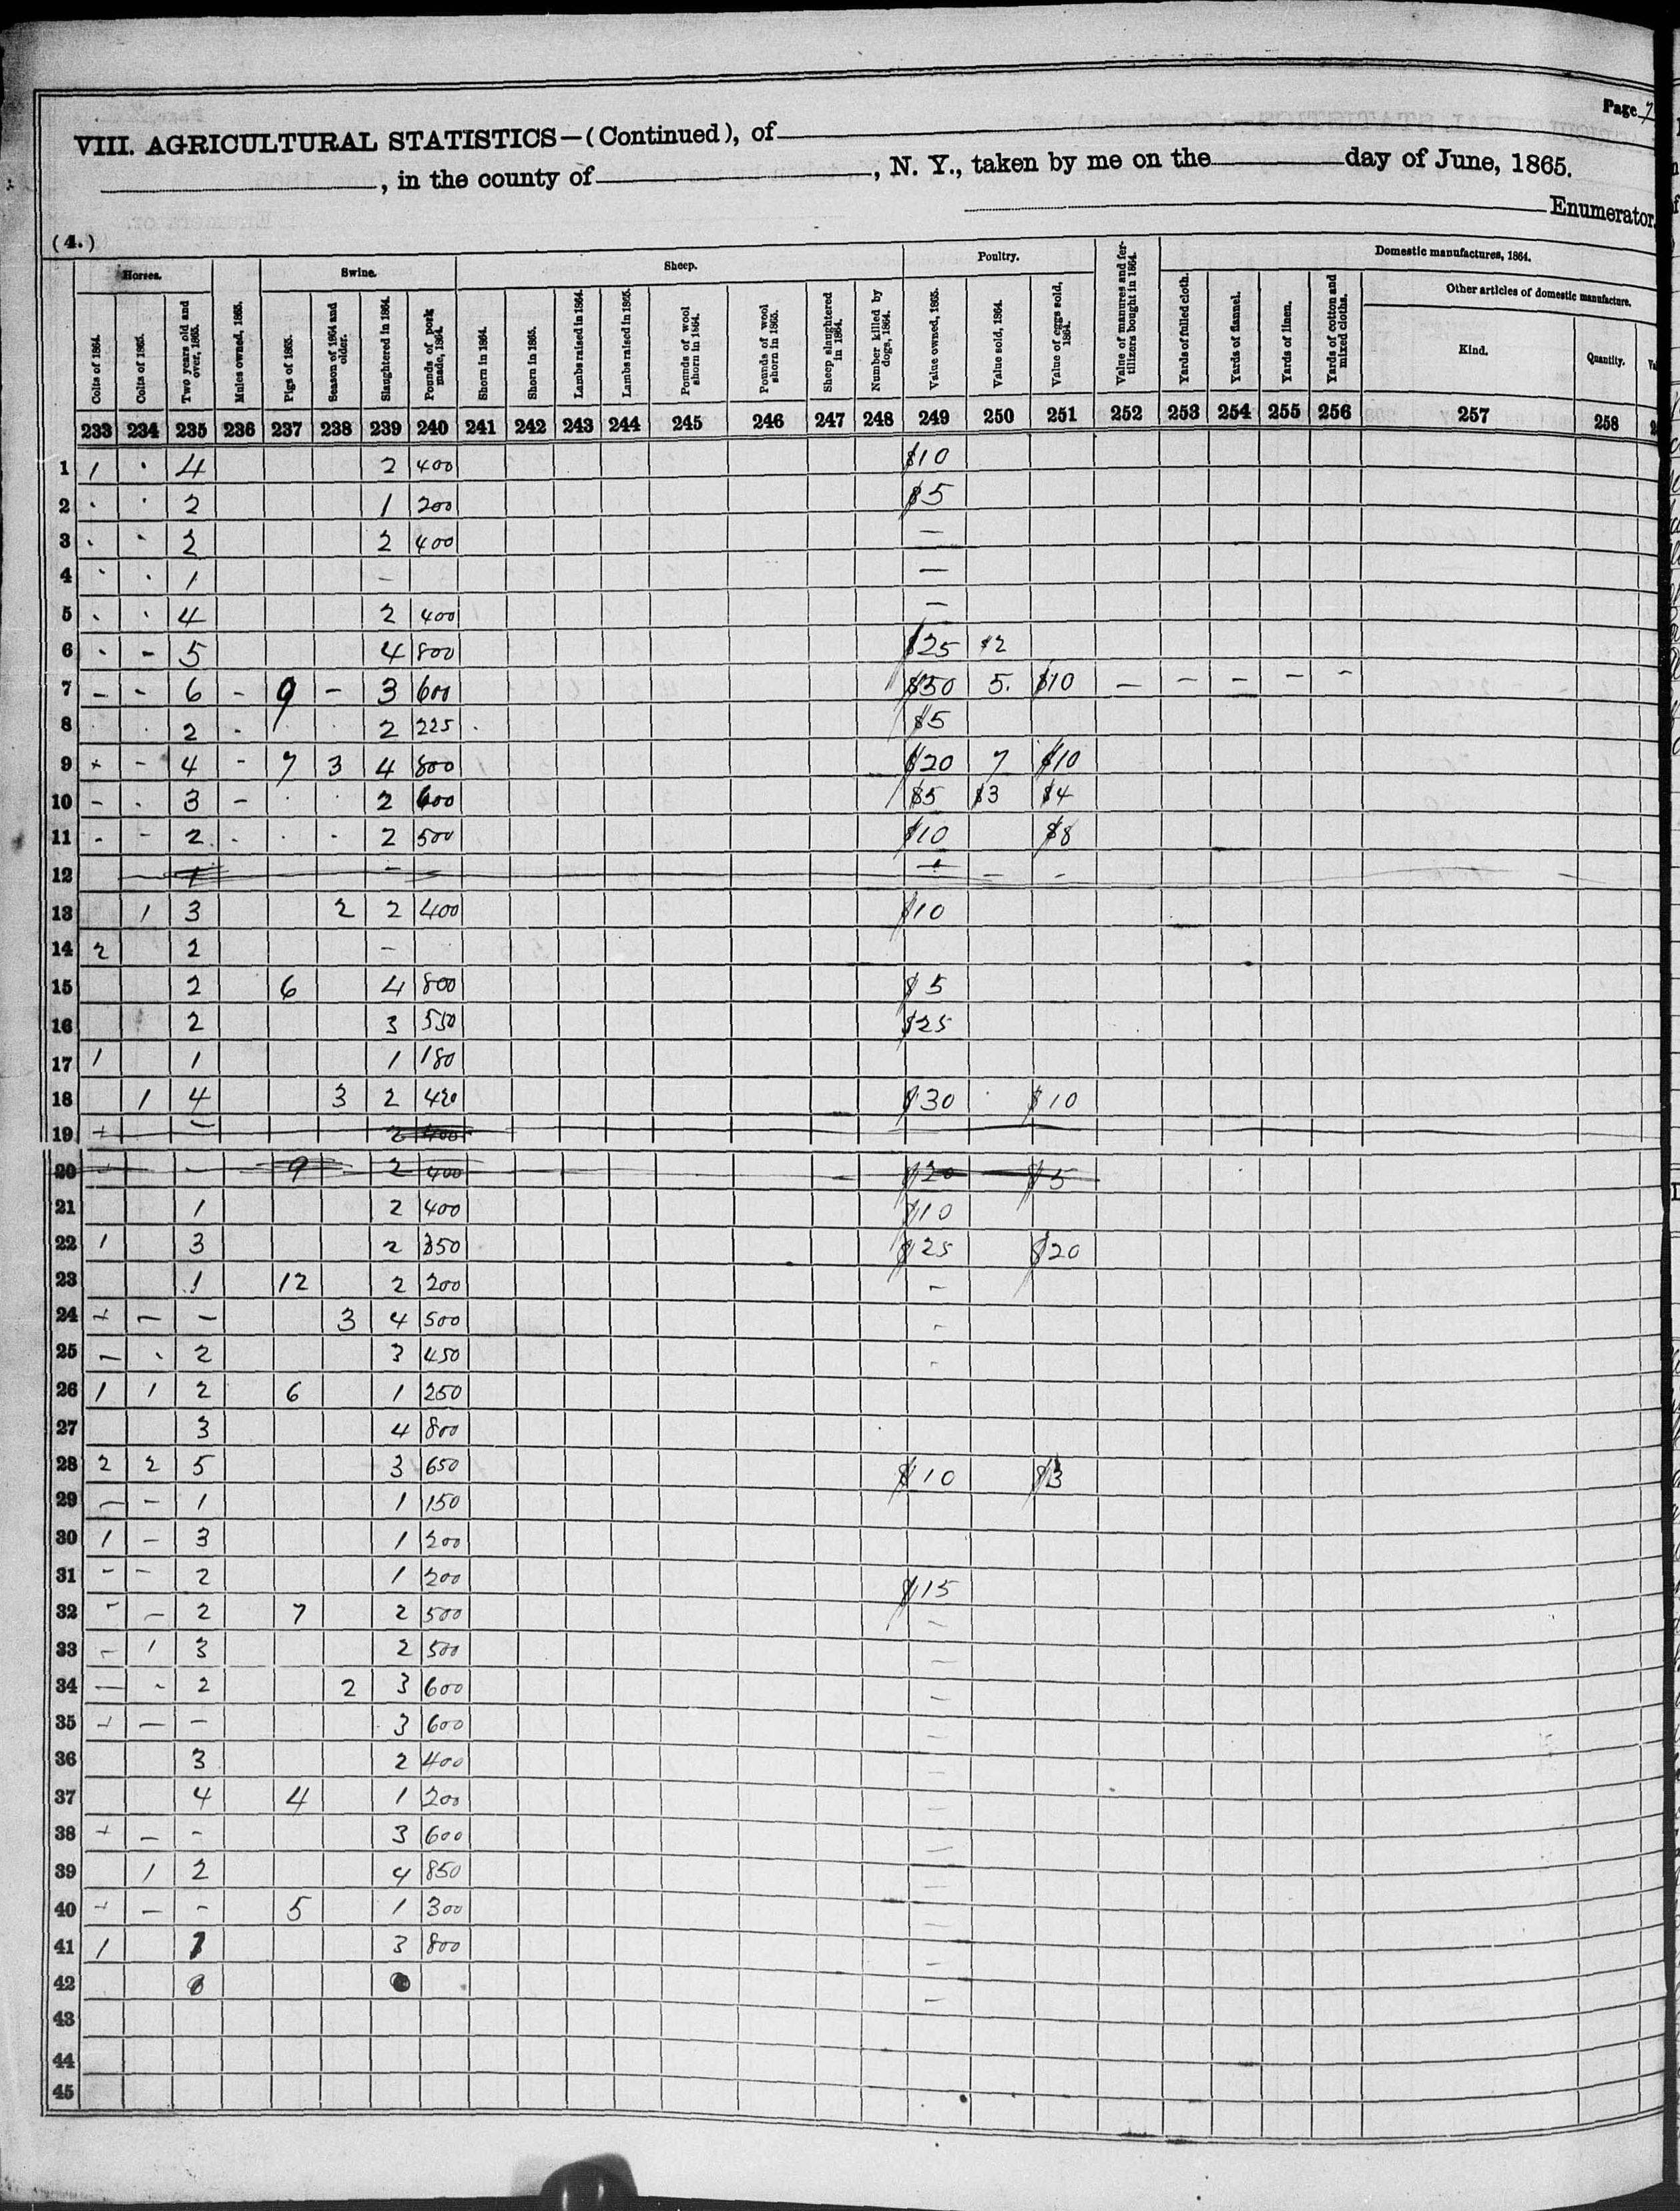 Page 7
VIII. AGRICULTURAL STATISTICS—(Continued), of
, in the county of , N. Y., taken by me on the day of June, 1865.
Enumerator.
(4.)
Horses. Swine. Sheep. Poultry. Value of manures and fertilizers bought in 1864. Domestic manufactures, 1864.
Other articles of domestic manufacture.
Colts of 1864. Colts of 1865. Two years old and over, 1865. Mules owned, 1865. Pigs of 1865. Season of 1864 and older. Slaughtered in 1864. Pounds of pork made, 1864. Shorn in 1864. Shorn in 1865. Lambs raised in 1864. Lambs raised in 1865. Pounds of wool shorn in 1864. Pounds of wool shorn in 1865. Sheep slaughtered in 1864. Number killed by dogs, 1864. Value owned, 1865. Value sold, 1864. Value of eggs sold, 1864. Yards of fulled cloth. Yards of flannel. Yards of linen. Yards of cotton and mixed cloths. Kind. Quantity.
233 234 235 236 237 238 239 240 241 242 243 244 245 246 247 248 249 250 251 252 253 254 255 256 257 258
1 1 · 4 2 400 $10
2 · · 2 1 200 $5
3 · · 2 2 400 —
4 · · 1 – —
5 · · 4 2 400 —
6 · - 5 4 800 $25 $2
7 – - 6 - 9 – 3 600 $50 5. $10 — – – – –
8 · · 2 - · · 2 225 · $5
9 + - 4 - 7 3 4 800 $20 7 $10
10 - · 3 – · · 2 600 $5 $3 $4
11 - - 2 · · · 2 500 $10 $8
12 1 – – –
13 1 3 2 2 400 $10
14 2 2 –
15 2 6 4 800 $5
16 2 3 550 $25
17 1 1 1 180
18 1 4 3 2 420 $30 · $10
19 + – 2 400
20 – 9 2 400 $20 $5
21 1 2 400 $10
22 1 3 2 350 $25 $20
23 1 12 2 200 –
24 + – – 3 4 500 -
25 – · 2 3 450 -
26 1 1 2 6 1 250
27 3 4 800
28 2 2 5 3 650 $10 $3
29 – – 1 1 150
30 1 – 3 1 200
31 – – 2 1 200 $15
32 – – 2 7 2 500 –
33 – 1 3 2 500 –
34 — - 2 2 3 600 –
35 + — – 3 600 –
36 3 2 400 –
37 4 4 1 200 –
38 + – - 3 600 –
39 1 2 4 850 –
40 + – - 5 1 300 –
41 1 1 3 800 –
42 –
43
44
45